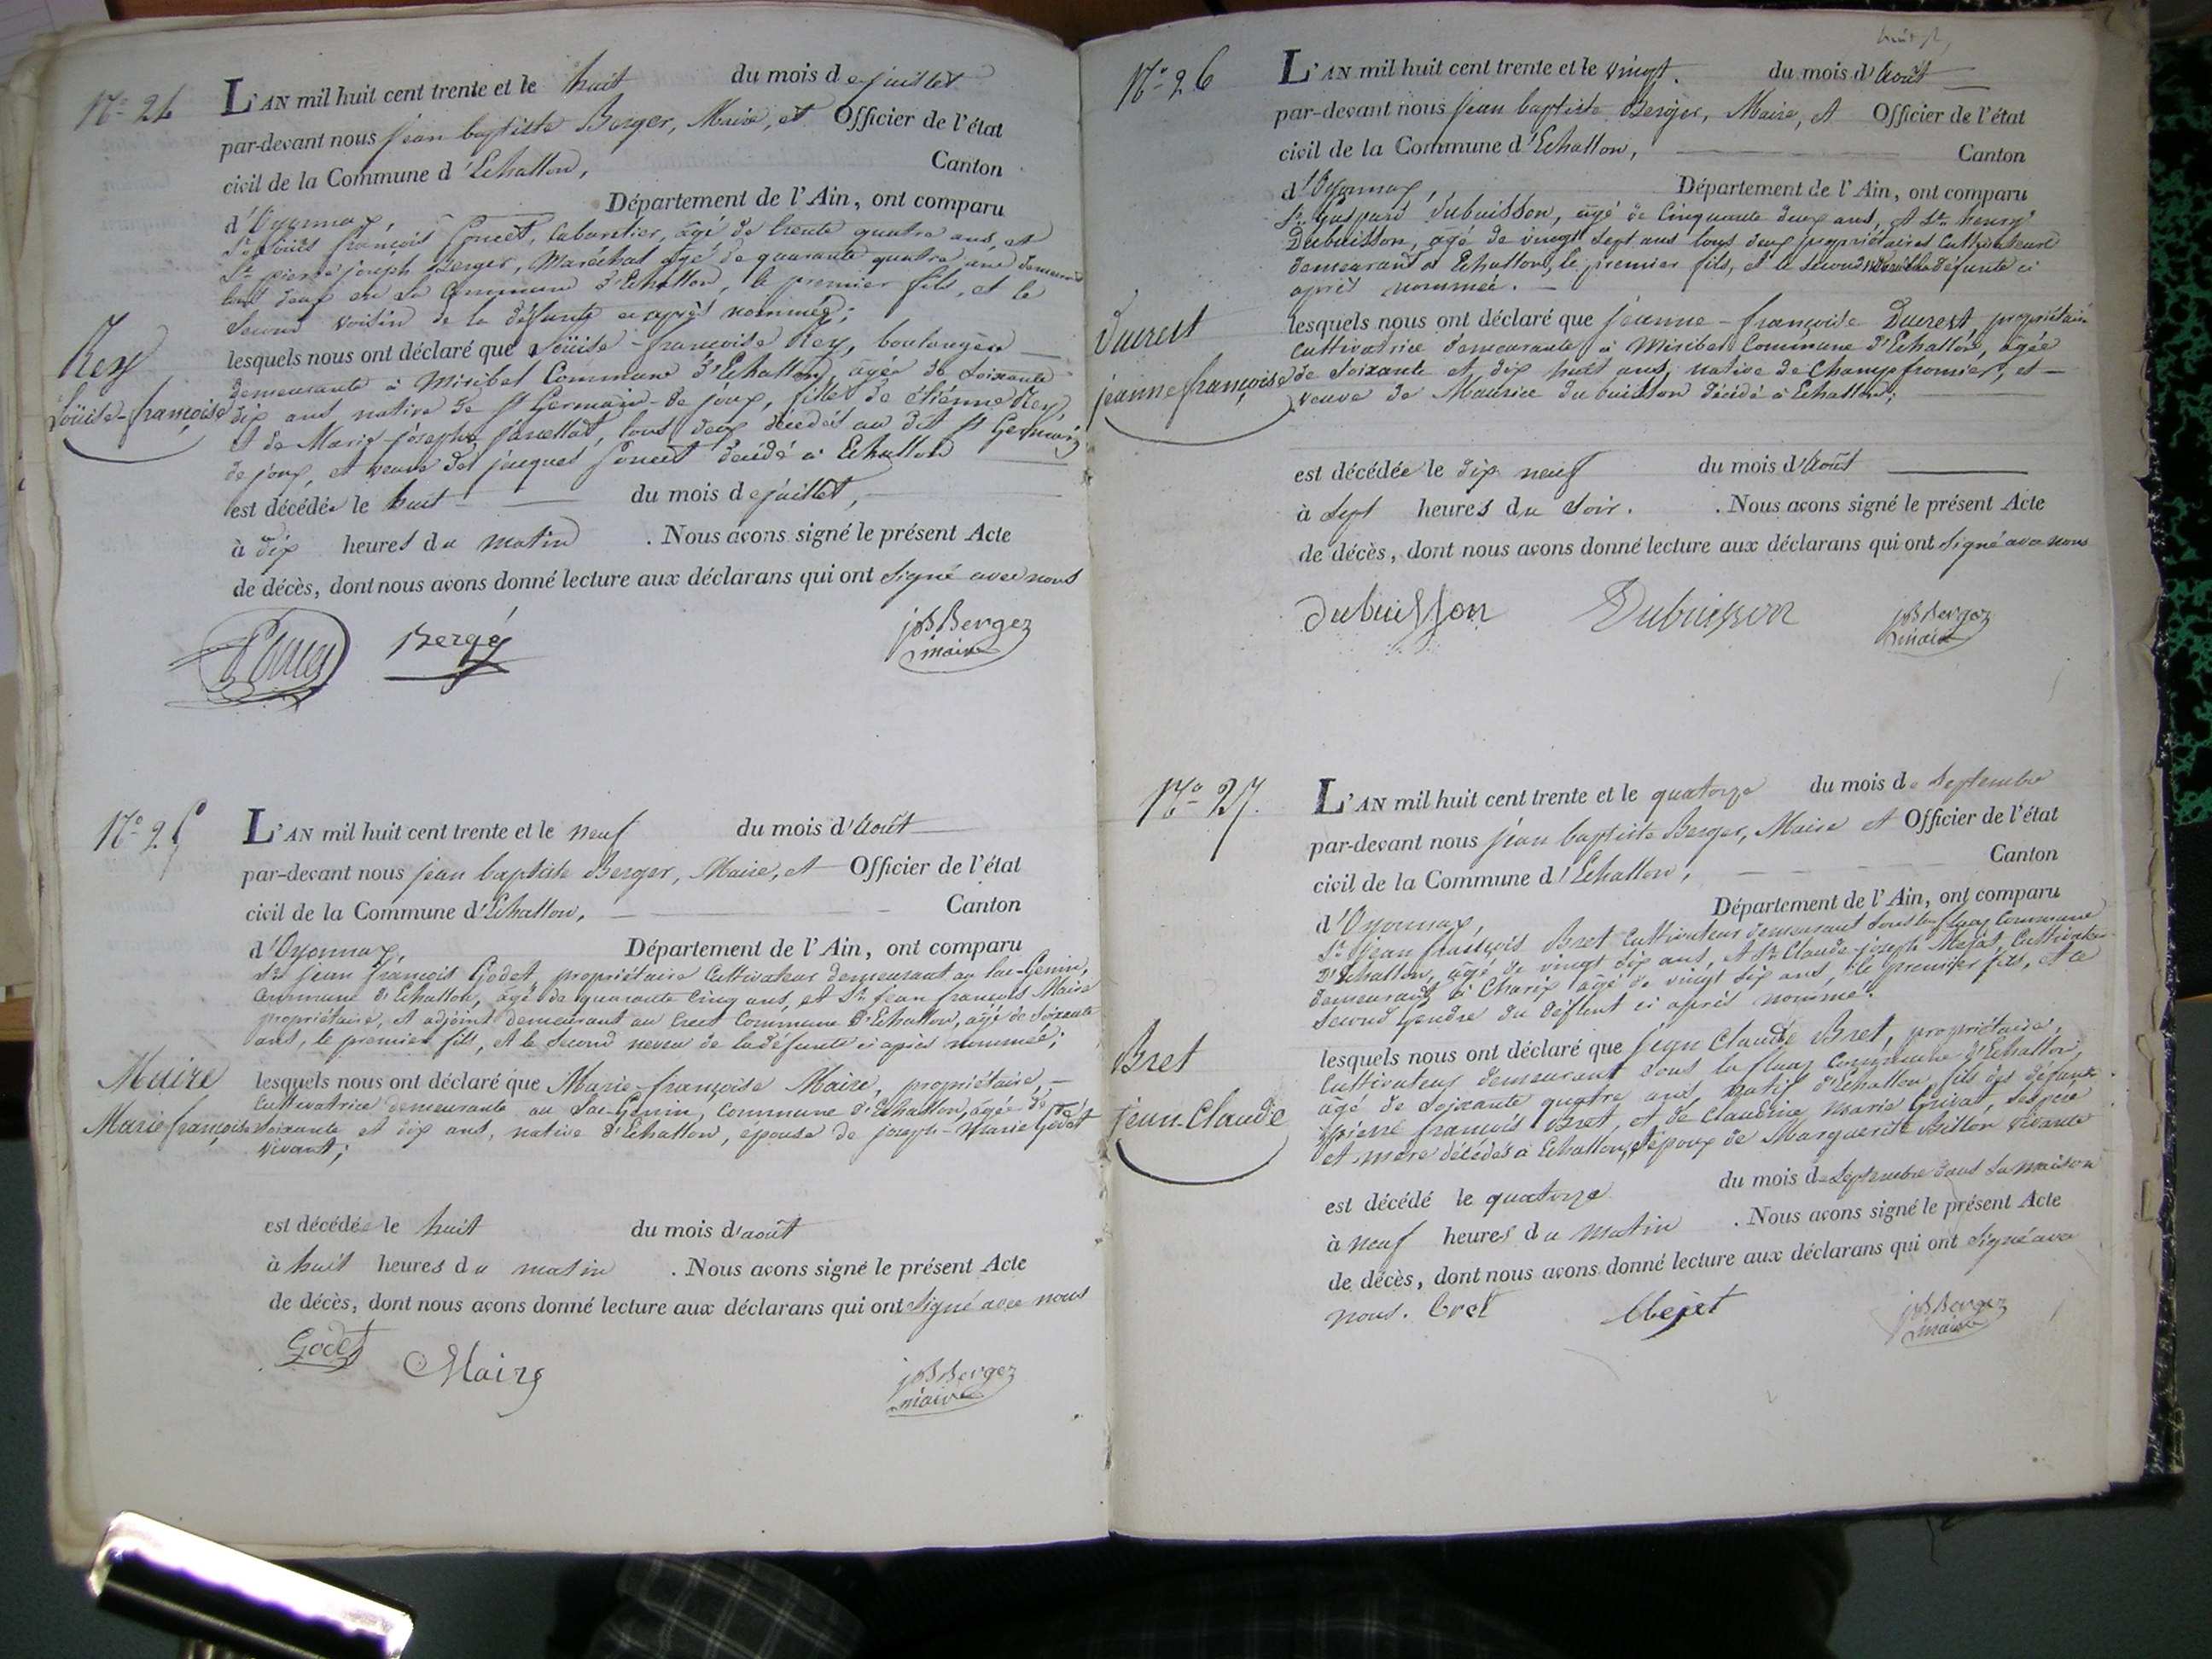 N.° 24
L'AN mil huit cent trente et le huit du mois de juillet
par-devant nous jean baptiste Berger, Maire, et Officier de l'état
civil de la Commune d'Echallon, Canton
d'Oyonnax, Département de l'Ain, ont comparu
Sr. Loüis françois Poncet, Cabaretier, âgé de trente quatre ans, et
Sr. pierre joseph Berger, Maréchal âgé de quarante quatre ans demeurant
tous deux en la Commune d'Echallon, le premier fils, et le
Second voisin de la défunte ci après nommée;
Rey
Loüise-françoise
lesquels nous ont déclaré que Loüise-françoise Rey, boulangère
demeurante à Miribel Commune d'Echallon, âgée de Soixante
dix ans native de St Germain de joux, fille de Etiénne Rey,
et de Marie josephe, tous deux décédés au dit St Germain
de joux, et veuve de jacques Poncet décédé à Echallon
est décédée le huit du mois de juillet,
à dix heures du matin . Nous avons signé le présent Acte
de décès, dont nous avons donné lecture aux déclarans qui ont Signé avec nous
Poncet Bergé jB Berger
maire
N.° 25
L'AN mil huit cent trente et le neuf du mois d'Août
par-devant nous jean baptiste Berger, Maire, et Officier de l'état
civil de la Commune d'Echallon, Canton
d'Oyonnax, Département de l'Ain, ont comparu
Sr. jean françois Godet, propriétaire Cultivateur demeurant au lac-Genin,
Commune d'Echallon, âgé de quarante Cinq ans, et Sr. jean françois Maire
propriétaire, et adjoint demeurant au Cret Commune d'Echallon, âgé de Soixante
ans, le premier fils, et le Second neveu de la défunte ci après nommée;
Maire
Marie françoise
lesquels nous ont déclaré que Marie-françoise Maire, propriétaire,
Cultivatrice demeurante au Lac-Genin, Commune d'Echallon, âgée de
Soixante et dix ans, native d'Echallon, épouse de joseph-Marie Godet
vivant;
est décédée le huit du mois d'août
à huit heures du matin . Nous avons signé le présent Acte
de décès, dont nous avons donné lecture aux déclarans qui ont Signé avec nous
Godet Maire jB Berger
maire
N.° 26
L'AN mil huit cent trente et le vingt. du mois d'Août
par-devant nous jean baptiste Berger, Maire, et Officier de l'état
civil de la Commune d'Echallon, Canton
d'Oyonnax, Département de l'Ain, ont comparu
Sr. Gaspard Dubuisson, âgé de Cinquante deux ans, et Sr. henry
Dubuisson, âgé de vingt Sept ans tous deux propriétaires Cultivateurs
demeurant à Echallon, le premier fils, et le Second de la défunte ci
après nommée.
Ducrest
jeanne françoise
lesquels nous ont déclaré que jeanne-françoise Ducrest propriétaire
Cultivatrice demeurante à Miribel Commune d'Echallon, âgée
de Soixante et dix huit ans, native de Champfromier, et
veuve de Maurice du buisson décédé à Echallon;
est décédée le dix neuf du mois d'Août
à Sept heures du Soir. . Nous avons signé le présent Acte
de décès, dont nous avons donné lecture aux déclarans qui ont Signé avec nous
Dubuisson Dubuisson jB Berger
maire
N.° 27.
L'AN mil huit cent trente et le quatorze du mois de Septembre
par-devant nous jean baptiste Berger, Maire et Officier de l'état
civil de la Commune d'Echallon, Canton
d'Oyonnax, Département de l'Ain, ont comparu
Sr. jean françois Bret Cultivateur demeurant Commune
d'Echallon, âgé de vingt dix ans, et Sr. Claude-joseph Mejat, Cultivateur
demeurant à Charix âgé de vingt dix ans, le premier fils, et le
Second Gendre du défunt ci après nommé.
Bret
jean-Claude
lesquels nous ont déclaré que jean Claude Bret, propriétaire,
Cultivateur demeurant Sous la fluaz Commune d'Echallon,
âgé de Soixante quatre ans, natif d'Echallon fils des défunts
pierre françois Bret, et de Claudine Marie Grivat, Ses père
et mère décédés à Echallon, époux de Marguerite Billon vivante
est décédé le quatorze du mois de Septembre dans Sa maison
à neuf heures du matin . Nous avons signé le présent Acte
de décès, dont nous avons donné lecture aux déclarans qui ont Signé avec
nous. bret Mejet jB Berger
maire